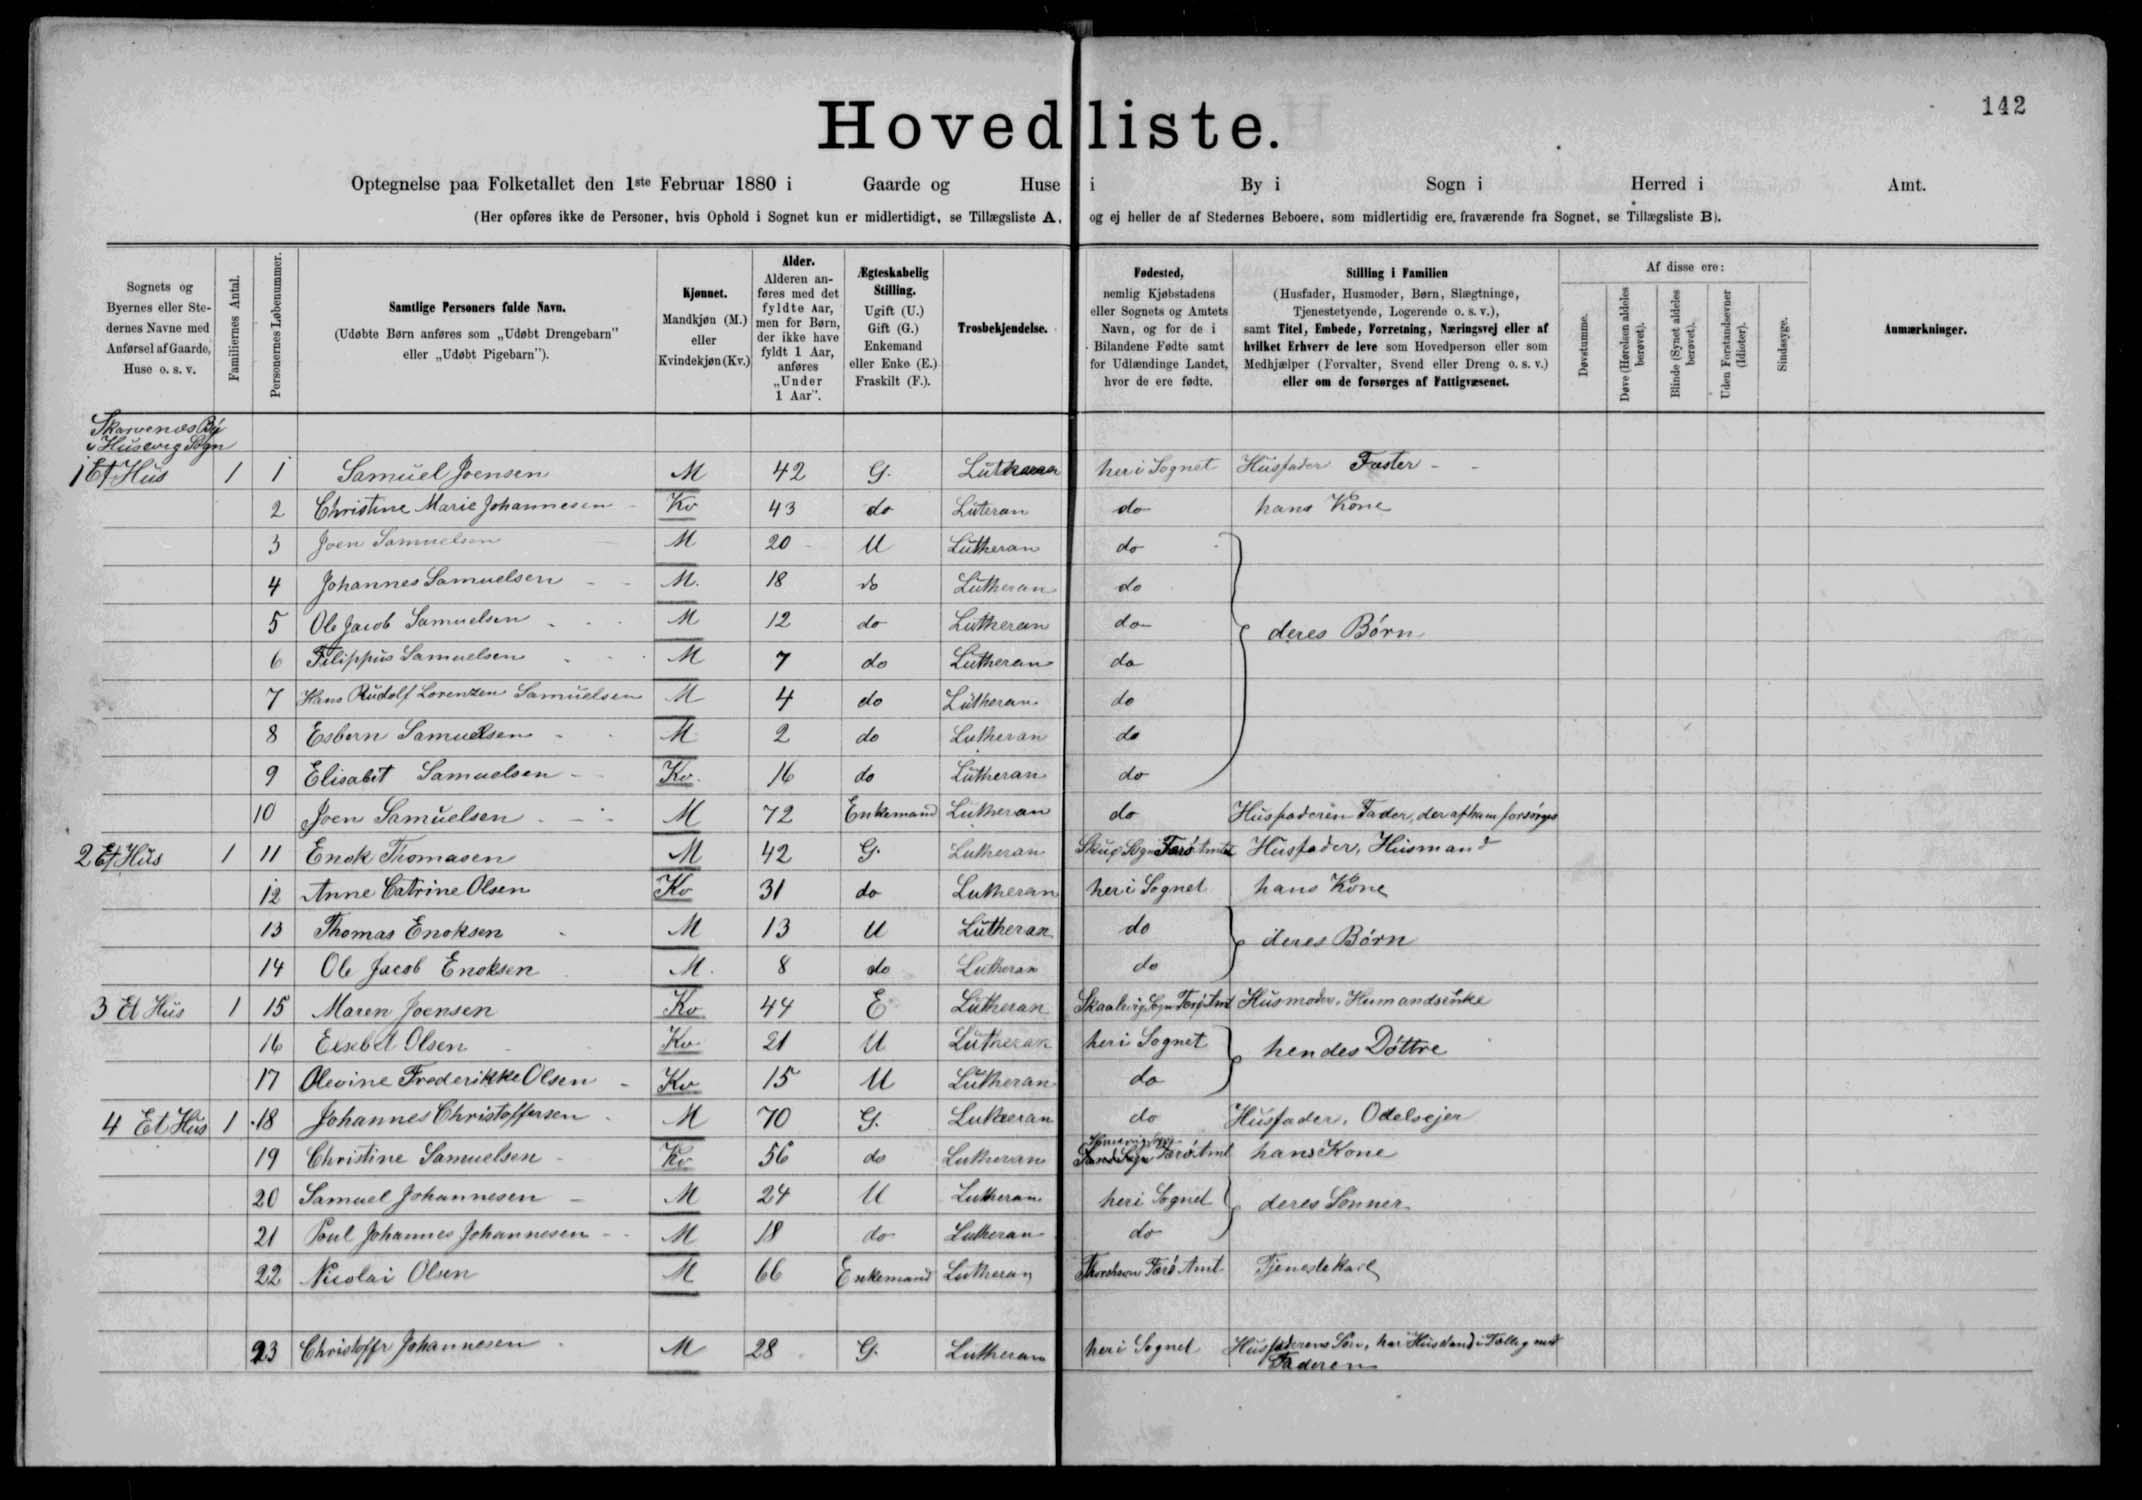 142
Hovedliste.
Optegnelse paa Folketallet den 1ste Februar 1880 i Gaarde og Huse i By i Sogn i Herred i Amt.
(Her opføres ikke de Personer, hvis Ophold i Sognet kun er midlertidigt, se Tillægsliste A, og ej heller de af Stedernes Beboere, som midlertidig ere fraværende fra Sognet, se Tillægsliste B).
Sognets og Byernes eller Stedernes Navne med Anførsel af Gaarde, Huse o. s. v.
Familiernes Antal.
Personernes Løbenummer.
Samtlige Personers fulde Navn.
(Udøbte Børn anføres som „Udøbt Drengebarn" eller „Udøbt Pigebarn").
Kjønnet.
Mandkjøn (M.) eller Kvindekjøn (Kv.)
Alder.
Alderen anføres med det fyldte Aar, men for Børn, der ikke have fyldt 1 Aar, anføres „Under 1 Aar".
Ægteskabelig Stilling.
Ugift (U.) Gift (G.) Enkemand eller Enke (E.) Fraskilt (F.).
Trosbekjendelse.
Fødested,
nemlig Kjøbstadens eller Sognets og Amtets Navn, og for de i Bilandene Fødte samt for Udlændinge Landet, hvor de ere fødte.
Stilling i Familien
(Husfader, Husmoder, Børn, Slægtninge, Tjenestetyende, Logerende o. s. v.),
samt Titel, Embede, Forretning, Næringsvej eller af hvilket Erhverv de leve som Hovedperson eller som Medhjælper (Forvalter, Svend eller Dreng o. s. v.)
eller om de forsørges af Fattigvæsenet.
Af disse ere:
Døvstumme.
Døve (Hørelsen aldeles berøvet).
Blinde (Synet aldeles berøvet).
Uden Forstandsevner (Idioter).
Sindssyge.
Anmærkninger.
Skarvenæs By
i Husevig Sogn
1 Et Hus 1 1 Samuel Joensen M 42 G. Lutheran her i Sognet Husfader Fæster
2 Christine Marie Johannesen Kv 43 do Luteran do hans Kone
3 Joen Samuelsen M 20 U Lutheran do
4 Johannes Samuelsen M. 18 do Lutheran do
5 Ole Jacob Samuelsen M 12 do Lutheran do deres Børn
6 Filippus Samuelsen M 7 do Lutheran do
7 Hans Rudolf Lorenzen Samuelsen M 4 do Lutheran do
8 Esbern Samuelsen M 2 do Lutheran do
9 Elisabet Samuelsen Kv. 16 do Lutheran do
10 Joen Samuelsen M 72 Enkemand Lutheran do Husfaderen Fader, der af ham forsørges
2 Et Hus 1 11 Enok Thomasen M 42 G. Lutheran Skuø Sogn Færø Amtet Husfader, Husmand
12 Anne Catrine Olsen Kv 31 do Lutheran her i Sognet hans Kone
13 Thomas Enoksen M 13 U Lutheran do deres Børn
14 Ole Jacob Enoksen M. 8 do Lutheran do
3 Et Hus 1 15 Maren Joensen Kv 44 E Lutheran Skaalevig Sogn Færø Amt Husmoder, Humandsenke
16 Elsebet Olsen Kv 21 U Lutheran her i Sognet hendes Døttre
17 Olevine Frederikke Olsen Kv 15 U Lutheran do
4 Et Hus 1 18 Johannes Christoffersen M 70 G. Lutheran do Husfader, Odelsejer
19 Christine Samuelsen Kv 56 do Lutheran Færø Amt hans Kone
20 Samuel Johannesen M 24 U Lutheran her i Sognet deres Sønner
21 Poul Johannes Johannesen M 18 do Lutheran do
22 Nicolai Olsen M 66 Enkemand Lutheran Thorshavn Færø Amt Tjenestekarl
23 Christoffr Johannesen M 28 G. Lutheran her i Sognet Husfaderens Søn, har Husstand i Fælleg med
Faderen